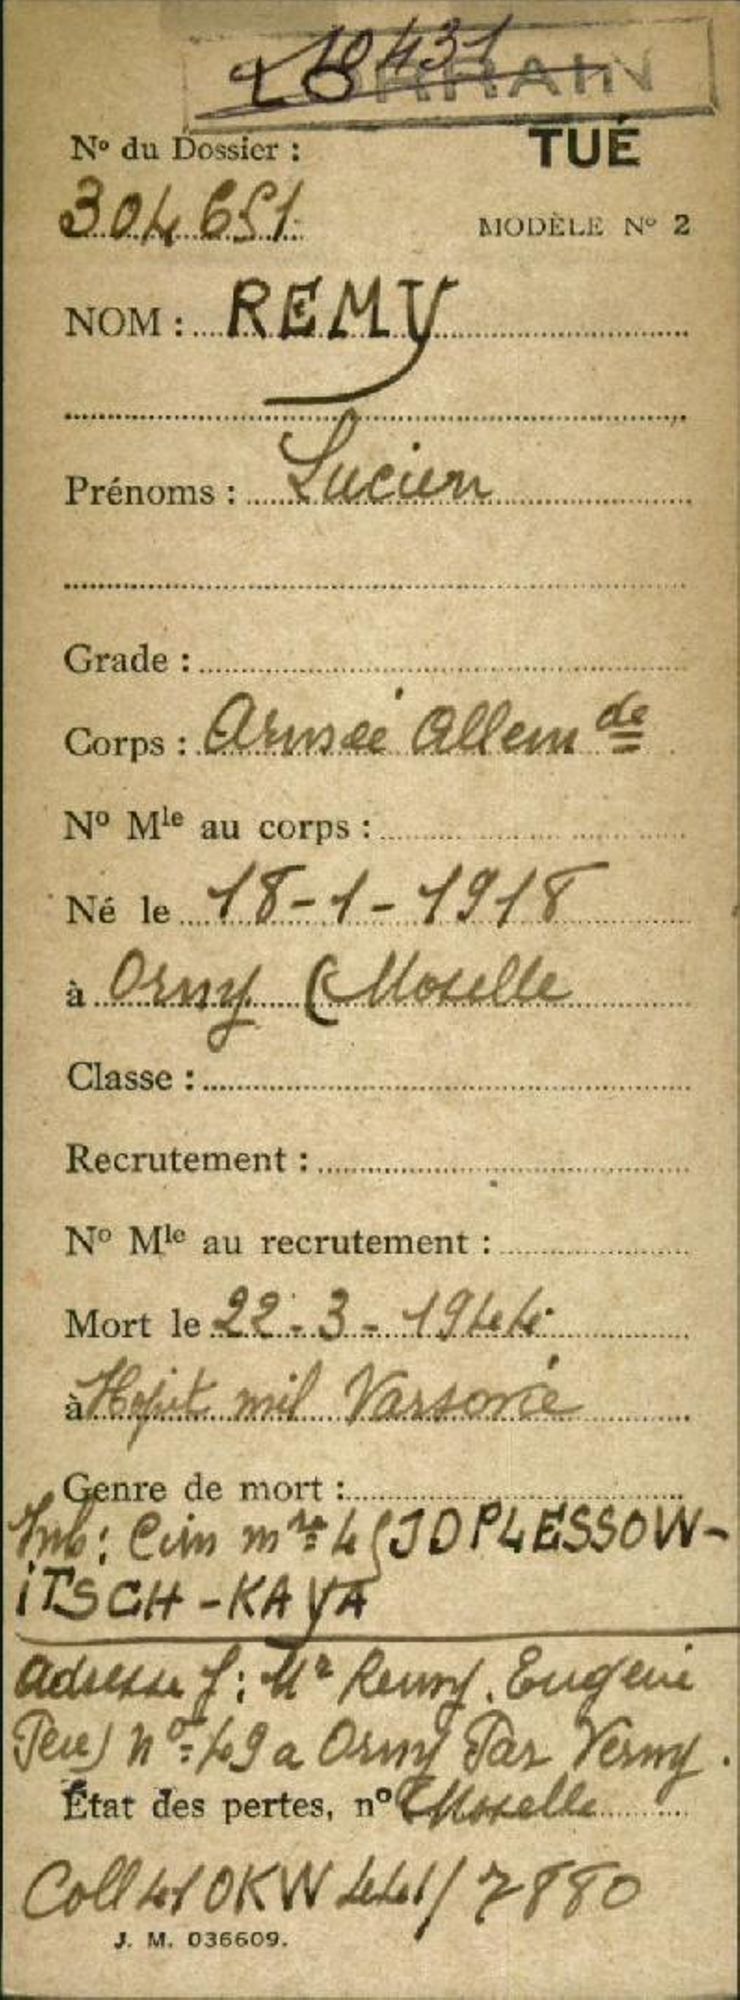 10431
LORRAIN
TUÉ
Nº du Dossier :
304651
MODÈLE Nº 2
NOM : REMY
Prénoms : Lucien
Grade :
Corps : Armée Allem de
Nº Mle au corps :
Né le 18-1-1918
à Orny (Moselle
Classe :
Recrutement :
Nº Mle au recrutement :
Mort le 22-3-1944
à Hopit mil Varsovie
Genre de mort :
Inh: Cim mre JDPLESSOW-
ITSCH-KAYA
Adresse f: Mr Remy. Eugène
Père) nº=49 a Orny Par Verny.
État des pertes, nº (Moselle
Coll OKW 441/7880
J. M. 036609.